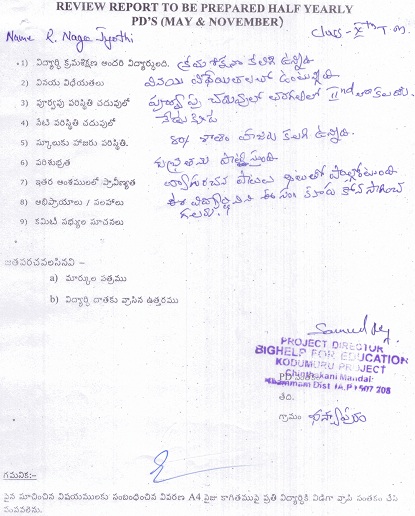 REVIEW REPORT TO BE PREPARED HALF YEARLY
PD'S (MAY & NOVEMBER)
Name R. Naga Jyothi
Class - Xth T.M.
1) విద్యార్థి క్రమశిక్షణ అందరి విద్యార్థులది. క్రమశిక్షణ కలిగి ఉన్నది.
2) వినయ విధేయతలు వినయ విధేయతలలో ఉంటున్నది
3) పూర్వపు పరిస్థితి చదువులో పూర్వపు చదువులో తరగతిలో IInd
4) నేటి పరిస్థితి చదువులో
5) స్కూలుకు హాజరు పరిస్థితి. 80% శాతం హాజరు కలిగి ఉన్నది.
6) పరిశుభ్రత శుభ్రతను పాటిస్తుంది
7) ఇతర అంశములలో ప్రావీణ్యత వ్యాసరచన పాటలు
8) అభిప్రాయాలు / సలహాలు ఈ
9) కమిటీ సభ్యుల సూచనలు
జతపరచవలసినవి :-
a) మార్కుల పత్రము
b) విద్యార్థి దాతకు వ్రాసిన ఉత్తరము
PROJECT DIRECTOR
BIGHELP FOR EDUCATION
KODUMURU PROJECT
Chinthakani Mandal:
Khammam Dist (A.P) 507 208
తేది.
గ్రామం
గమనిక:-
పైన సూచించిన విషయములకు సంబంధించిన వివరణ A4 సైజు కాగితముపై ప్రతి విద్యార్థికి విడిగా వ్రాసి సంతకం చేసి
పంపవలెను.